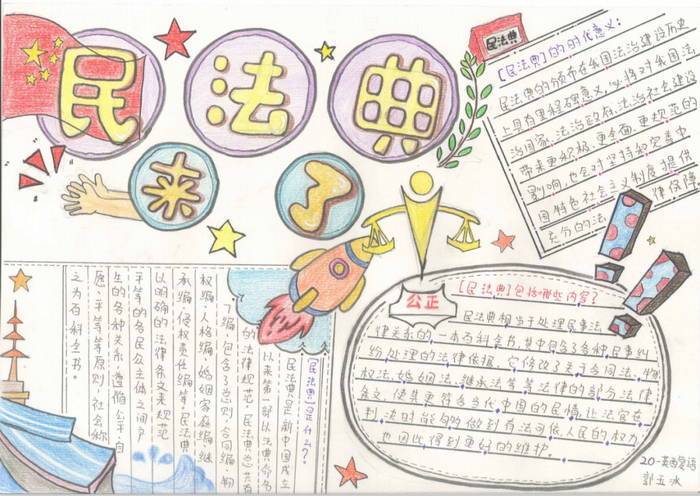 民法典
来了
民法典
[民法典]的时代意义:
民法典的颁布在我国法治建设历史
上具有里程碑意义,必将对我国法
治国家、法治政府、法治社会建设
带来更积极、更全面、更规范的
影响,也会对坚持和完善中
国特色社会主义制度提供
充分的法律保障
公正
[民法典]包括哪些内容?
民法典相当于处理民事法
律关系的一本百科全书,其中包含了各种民事纠
纷处理的法律依据,它修改了关于合同法、物
权法、婚姻法、继承法等等法律的部分法律
条文,使其更符合当代中国的民情,让法官在
判法时能够做到有法可依,人民的权力
也因此得到更好的维护。
[民法典]是什么?
民法典是新中国成立
以来第一部以法典命名
的法律规范,民法典共有
7编,包含了总则、合同编、物
权编、人格编、婚姻家庭编、继
承编、侵权责任编等,民法典
以明确的法律条文来规范
平等的各民众主体之间产
生的各种关系,遵循公平、自
愿、平等等原则,社会称
之为百科全书。
20-英西复语
郭五冰